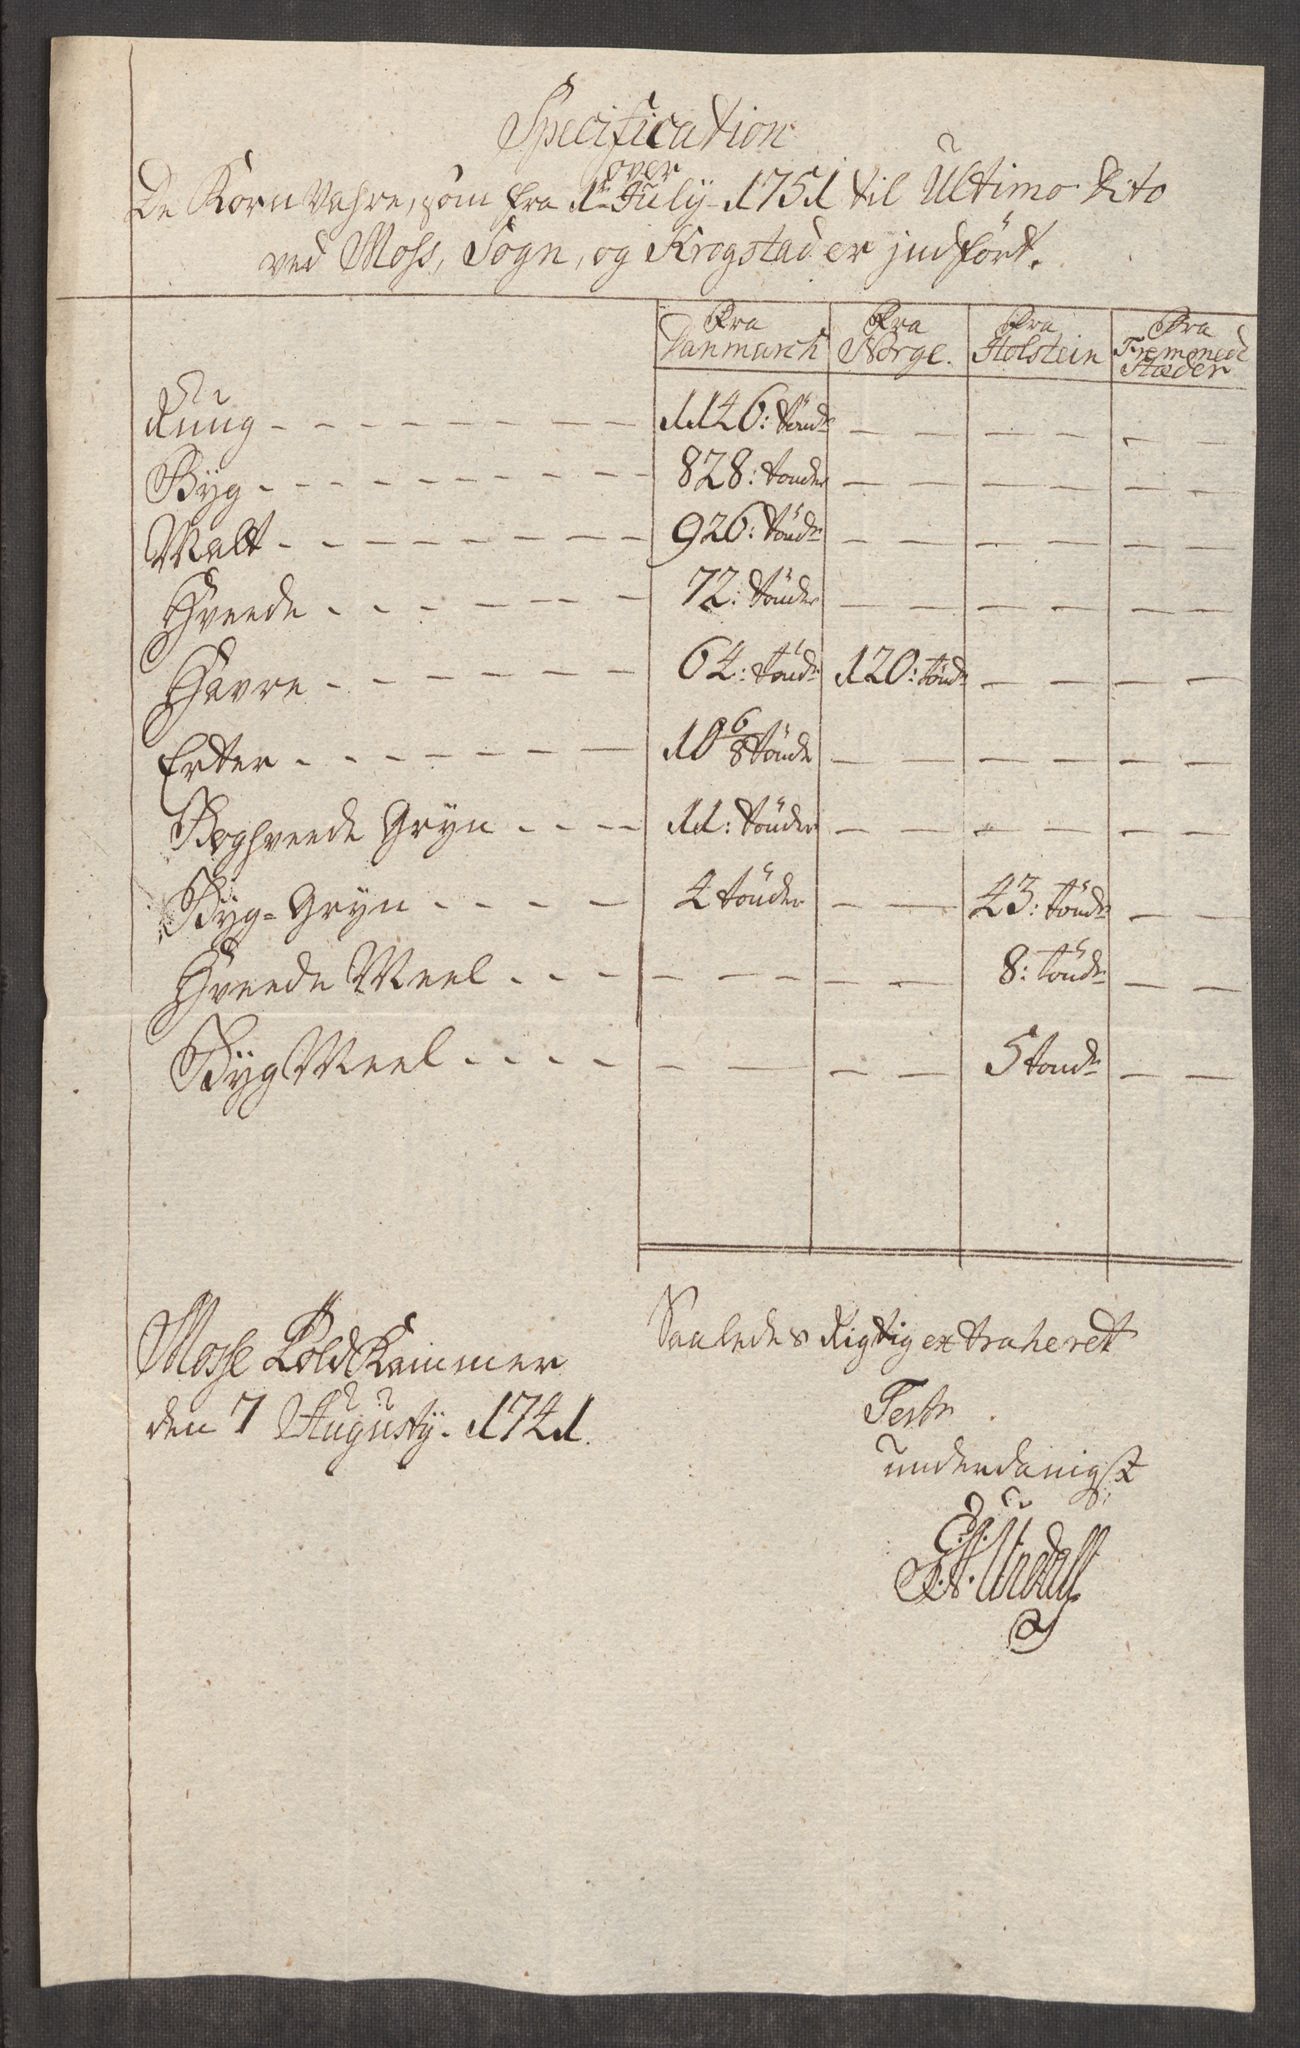 Specification
over
De Korn Vahre, som fra 1te July 1751 til Ultimo dito
ved Moss, Sogn, og Krogstad er jndført.
Fra Danmarch Fra Norge. Fra Holstein Fra Fremmede Stæder
Rug - - - 1146: Tönd: — — —
Byg - - - 828: tönder — — —
Malt - - - 926: tönd: — — —
Hveede - - - 72: tönder — — —
Havre - - - 64: tönd: 120: tönd: — —
Erter - - - 10 6/8 tönde — — —
Boghveede Gryn - - - 11: tönder — — —
Byg=Gryn - - - 4 tönder — 43: tönd: —
Hveede Meel - - - — — 8: tönd: —
Byg Meel - - - — — 5 tönd: —
Mosse Told Kammer
den 7 Augusty. 1741.
Saaledes Rigtig extraheret
Test:
underdanigst